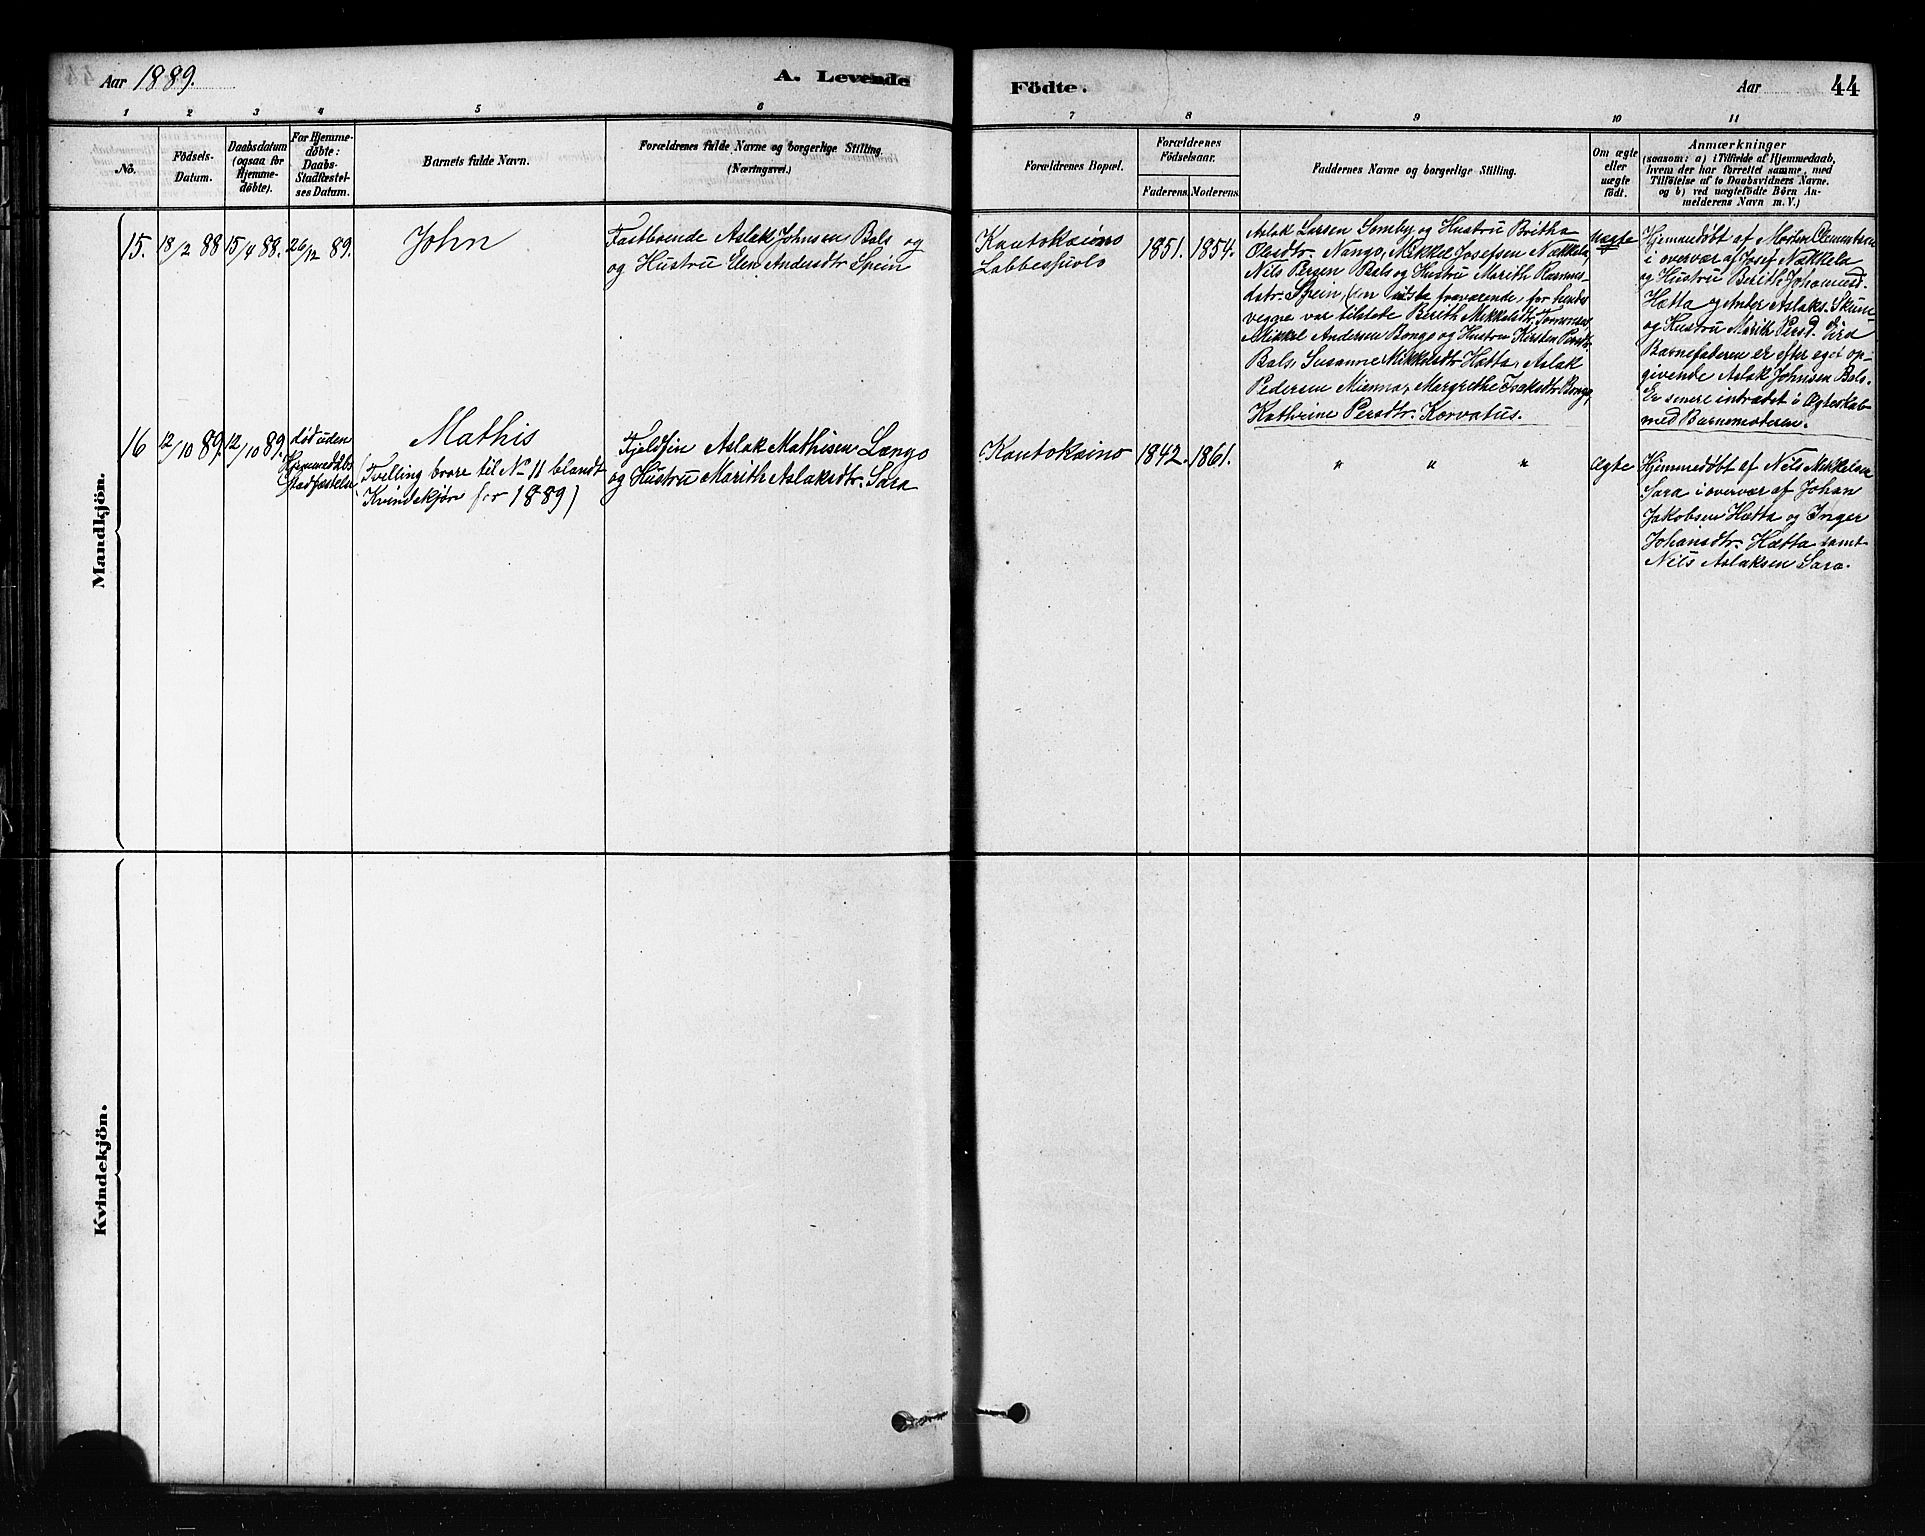 Aar 1889.
A. Levende
Födte.
Aar
44
1
2
3
4
5
6
7
8
9
10
11
No.
Födsels-
Datum.
Daabsdatum
(ogsaa for
Hjemme-
døbte).
For Hjemme-
døbte:
Daabs-
Stadfæstel-
ses Datum.
Barnets fulde Navn.
Forældrenes fulde Navne og borgerlige Stilling.
(Næringsvei.)
Forældrenes Bopæl.
Forældrenes
Födselsaar.
Faderens.
Moderens.
Faddernes Navne og borgerlige Stilling.
Om ægte
eller
uægte
født.
Anmærkninger
(saasom: a) i Tilfælde af Hjemmedaab,
hvem der har forrettet samme, med
Tilföielse af to Daabsvidners Navne.
og b) ved uægtefödte Börn An-
melderens Navn m. V.)
Mandkjön.
15.
18/2 88
15/4 88.
26/12 89.
John
Fastboende Aslak Johnsen Bals og
og Hustru Elen Andersdtr Spein
Kautokeino
Labbessuolo
1851.
1854.
Aslak Larsen Somby og Hustru Britha
Olesdtr. Nango, Mikkel Josefsen Nækkela,
Nils Persen Bals og Hustru Marith Rasmus-
datr. Spein, (den sidste fraværende, for hendes
vegne var tilstede Berith Mikkelsdtr. Tornensis
Mikkel Andersen Bongo og Hustru Kirsten Persdtr.
Bals, Susanne Mikkelsdtr. Hætta, Aslak
Pedersen Mienna, Margrethe Isaksdtr Bongo,
Kathrine Persdtr. Korvatus.
Uægte
Hjemmedøbt af Morten Clementsen
i overvær af Josef Nækkela
og Hustru Berith Johannesd.
Hætta og Anter Aslaks. Skum
og Hustru Marith Persd. Sara
Barnefaderen er efter eget op-
givende Aslak Johnsen Bals.
Er senere intrædet i Ægteskab
med Barnemoderen.
16
12/10 89.
12/10 89.
død uden
Hjemmedaabs
Stadfæstelse
Mathis
(Tvilling broer til No 11 blandt
Kvindekjøn for 1889)
Fjeldfin Aslak Mathisen Længo
og Hustru Marith Aslaksdtr. Sara
Kautokeino
1842.
1861.
" " "
Ægte
Hjemmedøbt af Nils Mikkelsen
Sara i overvær af Johan
Jakobsen Hætta og Inger
Johansdtr. Hætta samt
Nils Aslaksen Sara.
Kvindekjön.